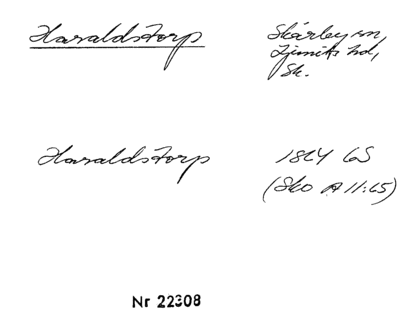 Haraldstorp
Skårby sn,
Ljunits hd,
Sk.
Haraldstorp
1864 GS
(Sko A 11:65)
Nr 22308